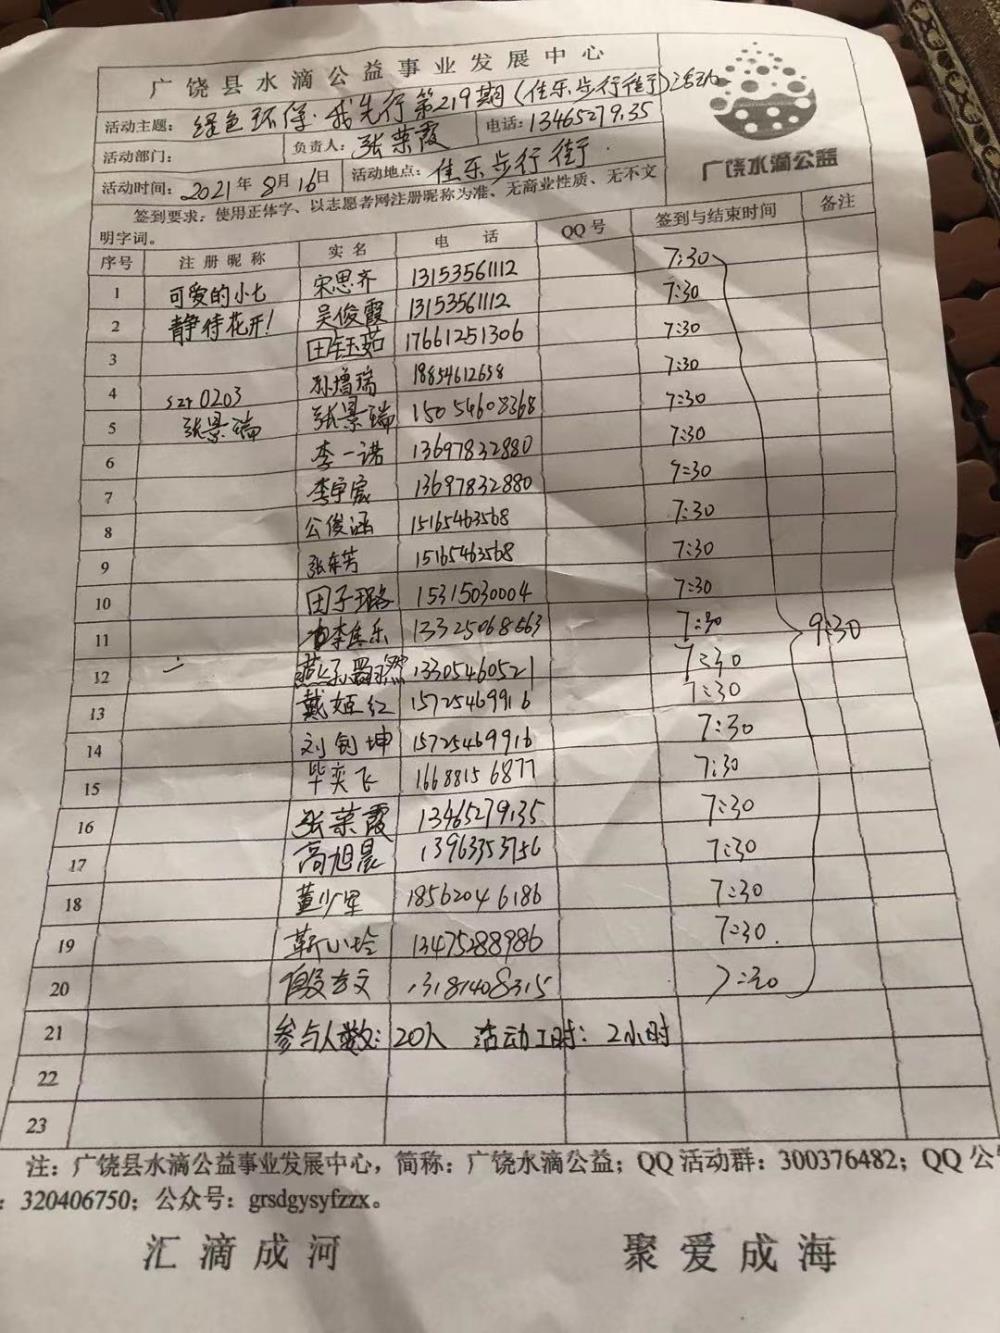 广饶县水滴公益事业发展中心
活动主题: 绿色环保·我先行第219期(佳乐步行街)活动
活动部门: 负责人: 张荣霞 电话: 13465279135
活动时间: 2021年8月16日 活动地点: 佳乐步行街.
广饶水滴公益
签到要求: 使用正体字、以志愿者网注册昵称为准、无商业性质、无不文
明字词。
序号 注册昵称 实名 电话 QQ号 签到与结束时间 备注
1 可爱的小七 宋思齐 13153561112 7:30
2 静待花开! 吴俊霞 13153561112 7:30
3 田钰茹 17661251306 7:30
4 szr0203 孙增瑞 18854612658 7:30
5 张景瑞 张景瑞 15054608368 7:30
6 李一诺 13697832880 7:30
7 李宇宸 13697832880 7:30
8 公俊涵 15165463568 7:30
9 张东芳 15165463568 7:30
10 田子璐 15315030004 7:30
11 李佳乐 13325068563 7:30 9:30
12 13305460521 7:30
13 戴姬红 15725469916 7:30
14 刘钊坤 15725469916 7:30
15 毕奕飞 16688156877 7:30
16 张荣霞 13465279135 7:30
17 高旭晨 13963353756 7:30
18 董少军 18562046186 7:30
19 靳小玲 13475288986 7:30
20 13181408315 7:30
21 参与人数: 20人 活动工时: 2小时
22
23
注: 广饶县水滴公益事业发展中心, 简称: 广饶水滴公益; QQ活动群: 300376482; QQ公
: 320406750; 公众号: grsdgysyfzzx。
汇滴成河 聚爱成海